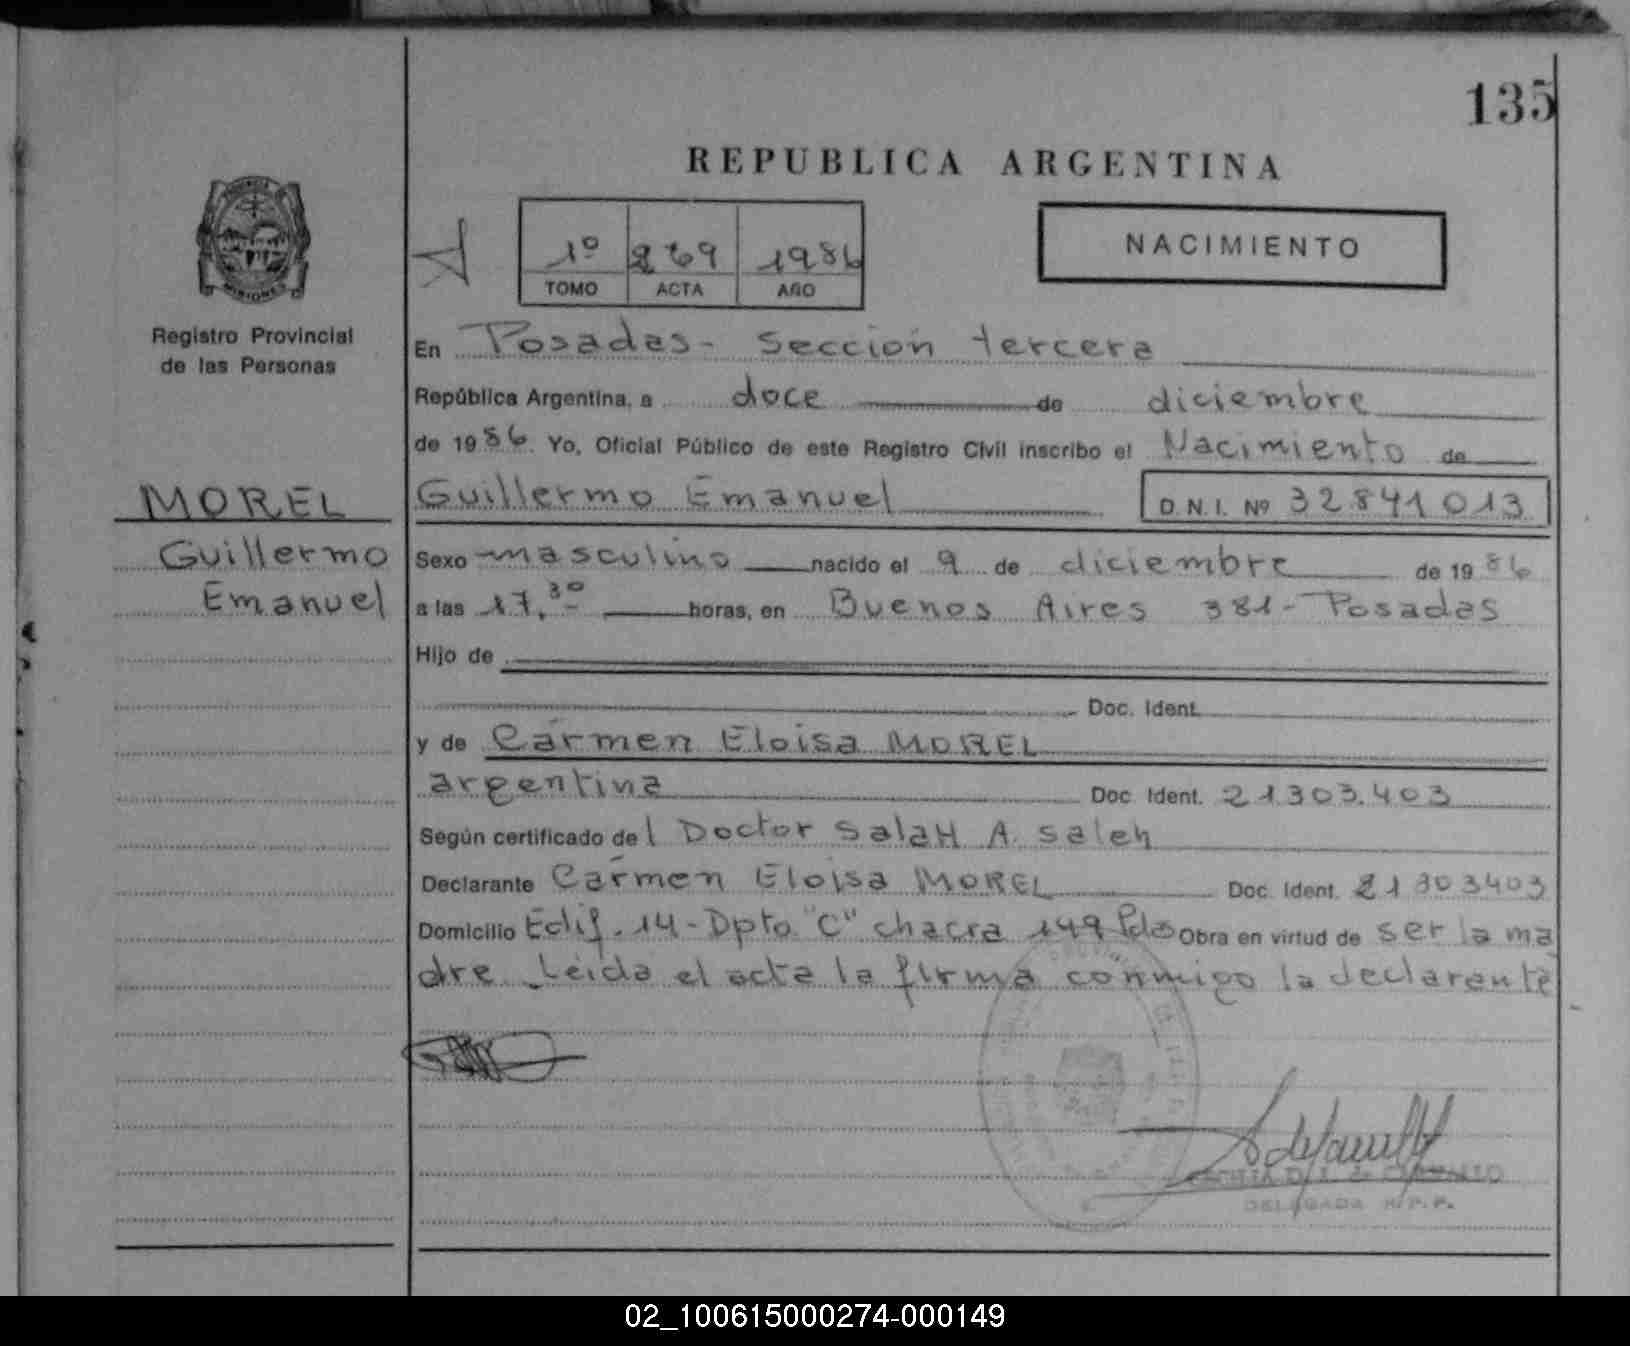 135
REPUBLICA ARGENTINA
PROVINCIA
MISIONES
Registro Provincial
de las Personas
1º 269 1986
TOMO ACTA AÑO
NACIMIENTO
En Posadas- Sección tercera
República Argentina, a doce de diciembre
de 1986. Yo, Oficial Público de este Registro Civil inscribo el Nacimiento de
MOREL
Guillermo
Emanuel
Guillermo Emanuel D.N.I. Nº 32841013
Sexo masculino nacido el 9 de diciembre de 1986
a las 17,30 horas, en Buenos Aires 381- Posadas
Hijo de
Doc. Ident.
y de Carmen Eloisa MOREL
argentina Doc. Ident. 21303.403
Según certificado del Doctor Salah A. Saleh
Declarante Carmen Eloisa MOREL Doc. Ident. 21303403
Domicilio Edif. 14-Dpto "C" chacra 149 Pdas Obra en virtud de ser la ma
dre. Leida el acta la firma conmigo la declarante
DELEGADA R.P.P.
02_100615000274-000149